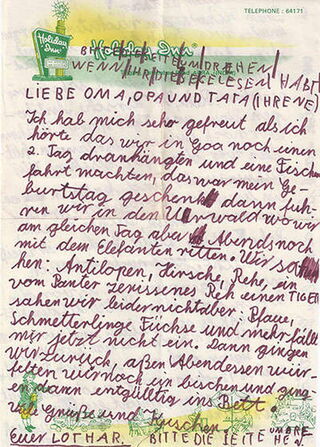 TELEPHONE : 64171
Holiday Inn
Holiday Inn
BITTE SEITE UMDREHEN
WENN IHR DIESE GELESEN HABT
LIEBE OMA, OPA UND TATA (IHRENE)
Ich hab mich sehr gefreut als ich
hörte das wir in Goa noch einen
2. Tag dranhängten und eine Fischer
fahrt machten, das war mein Ge-
burtstag geschenk dann fuh-
ren wir in den Urwald wo wir
am gleichen Tag aber Abends noch
mit dem Elefanten ritten. Wir sa
hen: Antilopen, Hirsche, Rehe, ein
vom Panter zerissenes Reh einen TIGER
sahen wir leider nicht aber: Pfaue,
Schmetterlinge Füchse und mehr fällt
mir jetzt nicht ein. Dann gingen
wir zurück, aßen Abendessen würr-
felten wir noch ein bischen und ging
en dann entgültig ins Bett.
viele Grüße und Küschen
Euer LOTHAR. BITTE DIE SEITE UMDRE
HE